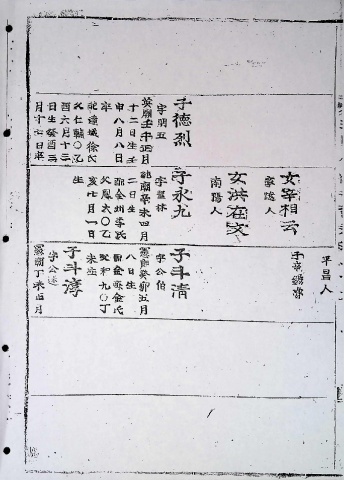 子德烈
字明五
英廟壬午四月
十二日生壬
申八月八日
卒
配達城徐氏
父仁輔○乙
酉六月十三
日生癸酉三
月十七日卒
女辛相云
寧越人
女洪在文
南陽人
子永
字聖林
純廟辛未四月
二日生
配全州李氏
父鳳文○乙
亥七月一日
生
平昌人
子斗清
字公伯
憲廟癸卯五月
八日生
配金海金氏
父和九○丁
未生
子斗淳
字公
憲廟丁未四月